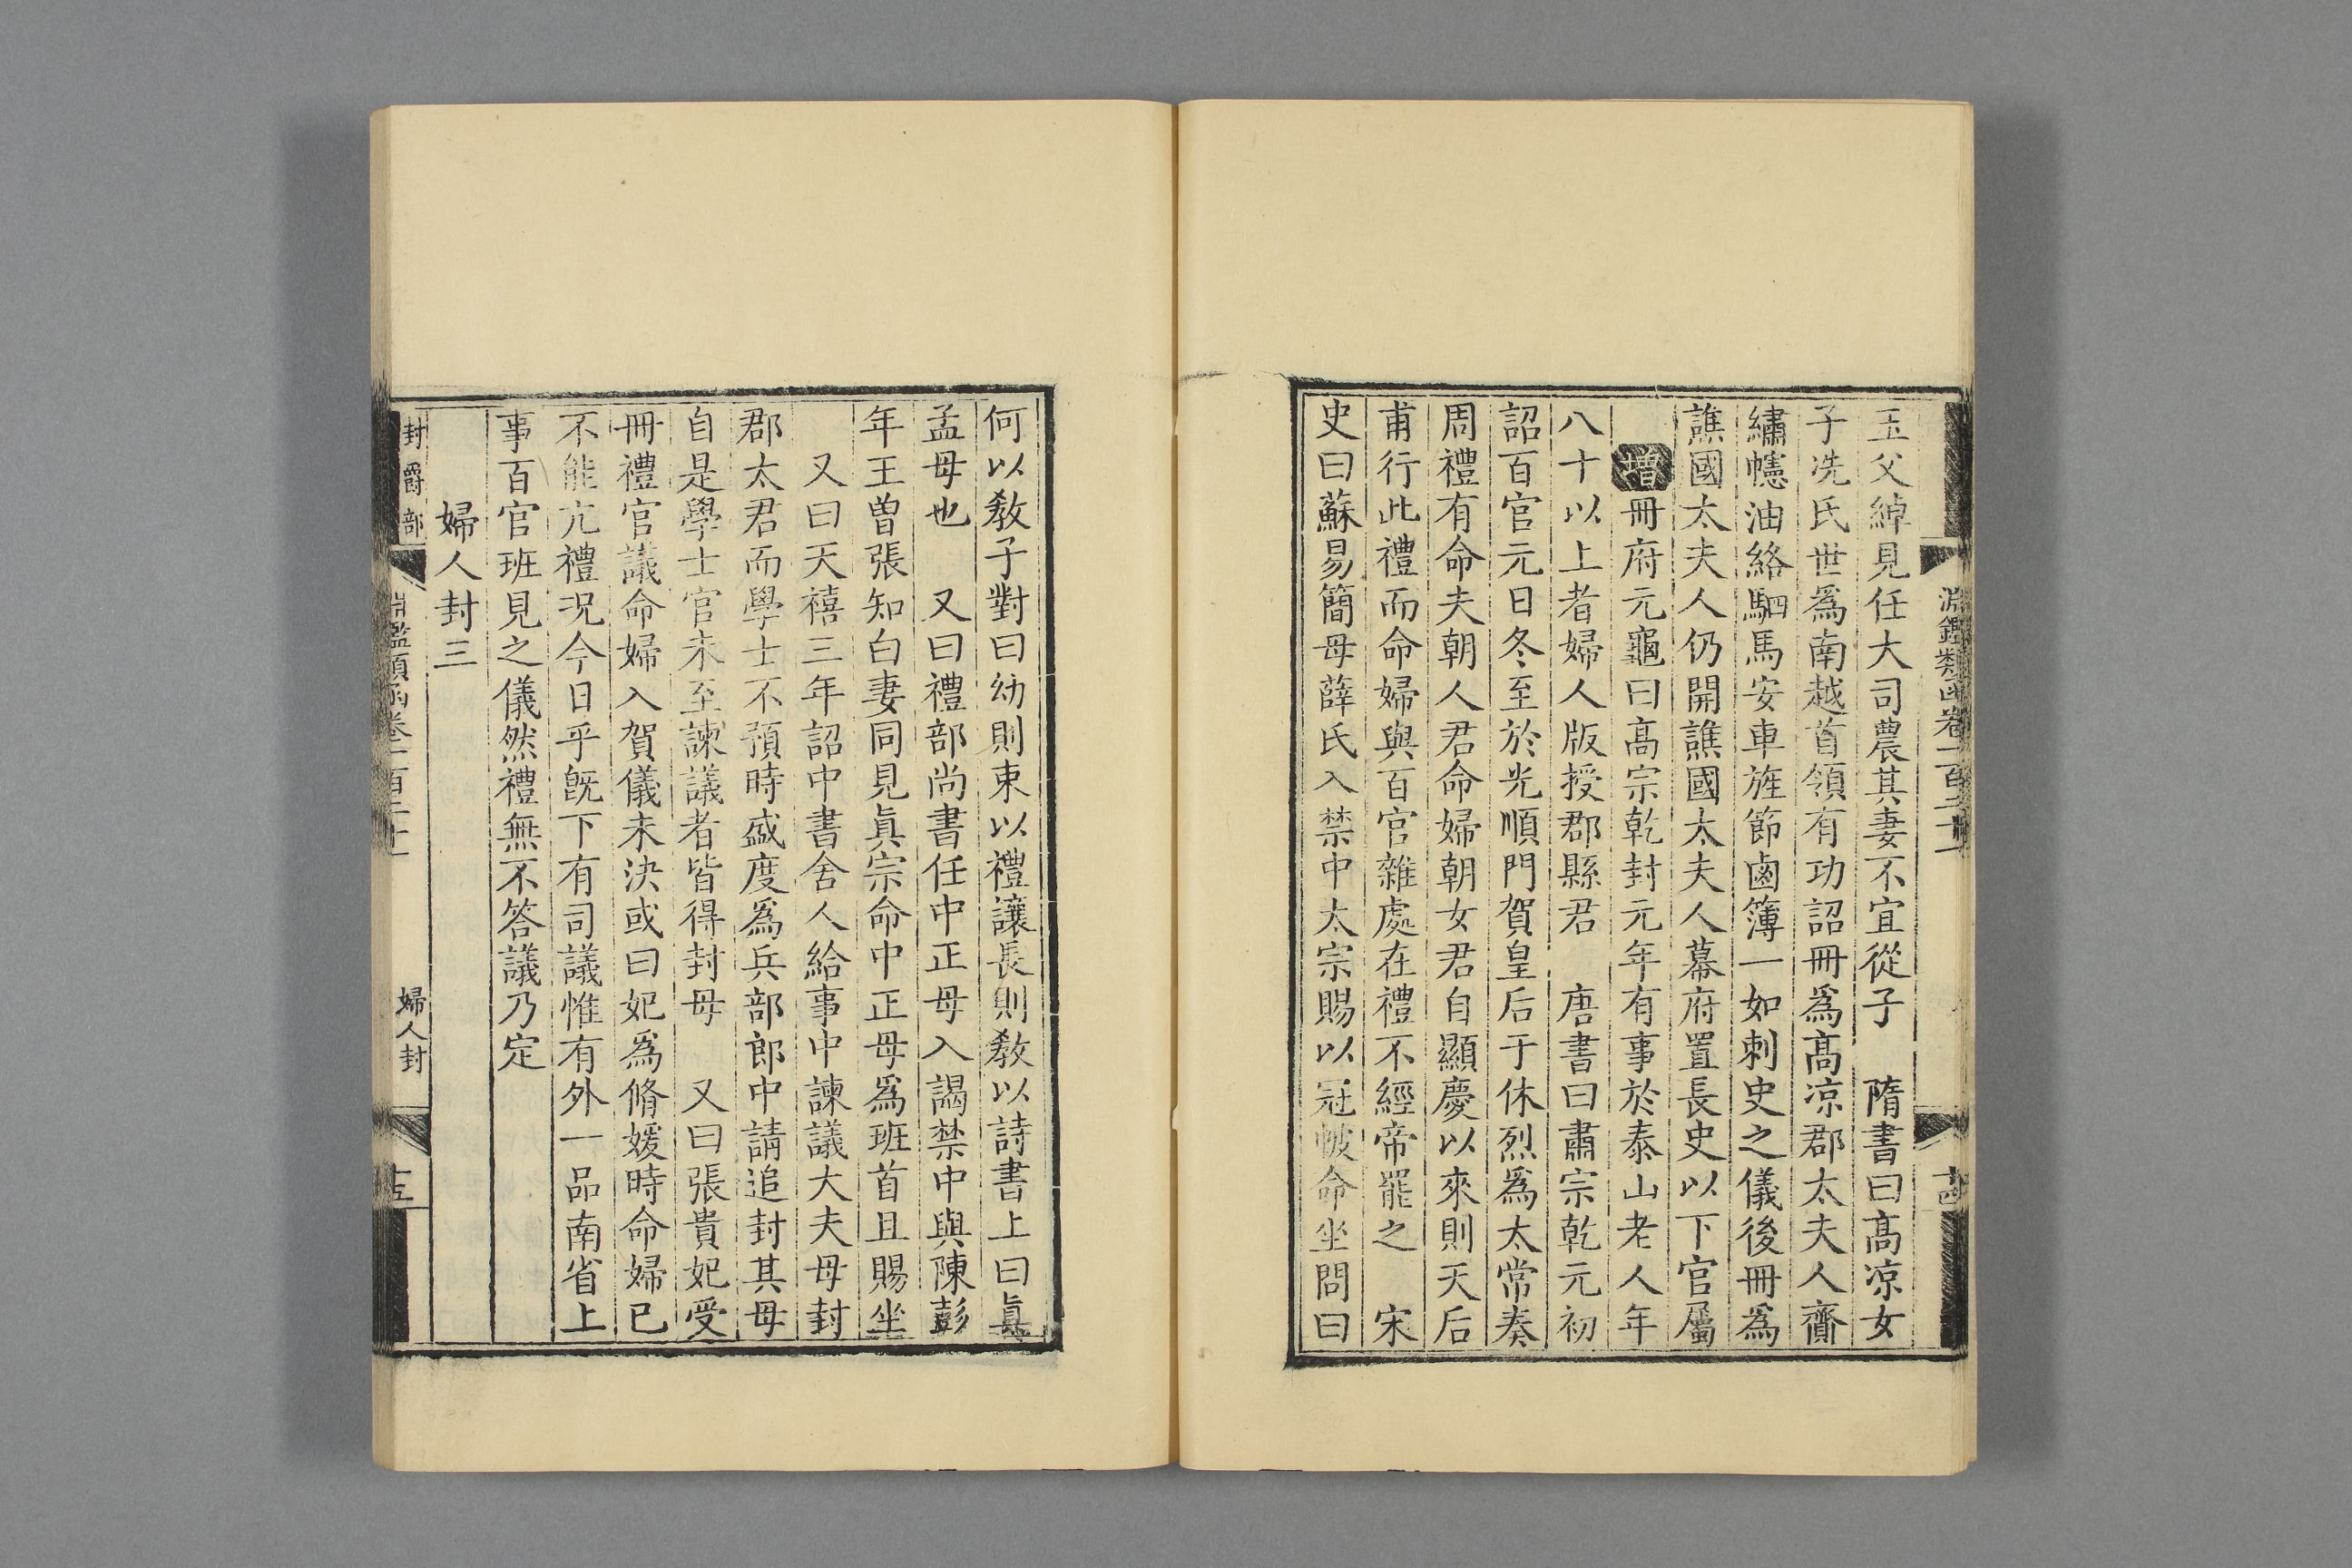 淵鑑類函卷一百二十一
十四
玉父綽見任大司農其妻不宜從子　隋書曰高凉女
子冼氏世爲南越首領有功詔冊爲高凉郡太夫人齎
繡幰油絡駟馬安車旌節鹵簿一如刺史之儀後冊爲
譙國太夫人仍開譙國太夫人幕府置長史以下官屬
增冊府元龜曰高宗乾封元年有事於泰山老人年
八十以上者婦人版授郡縣君　唐書曰肅宗乾元初
詔百官元日冬至於光順門賀皇后于休烈爲太常奏
周禮有命夫朝人君命婦朝女君自顯慶以來則天后
甫行此禮而命婦與百官雜處在禮不經帝罷之　宋
史曰蘇易簡母薛氏入禁中太宗賜以冠帔命坐問曰
何以敎子對曰幼則束以禮讓長則敎以詩書上曰眞
孟母也　又曰禮部尚書任中正母入謁禁中與陳彭
年王曽張知白妻同見眞宗命中正母爲班首且賜坐
又曰天禧三年詔中書舍人給事中諫議大夫母封
郡太君而學士不預時盛度爲兵部郎中請追封其母
自是學士官未至諫議者皆得封母　又曰張貴妃受
冊禮官議命婦入賀儀未決或曰妃爲脩媛時命婦已
不能亢禮况今日乎旣下有司議惟有外一品南省上
事百官班見之儀然禮無不答議乃定
婦人封三
封爵部
淵鑑類函卷一百二十一
婦人封
十五